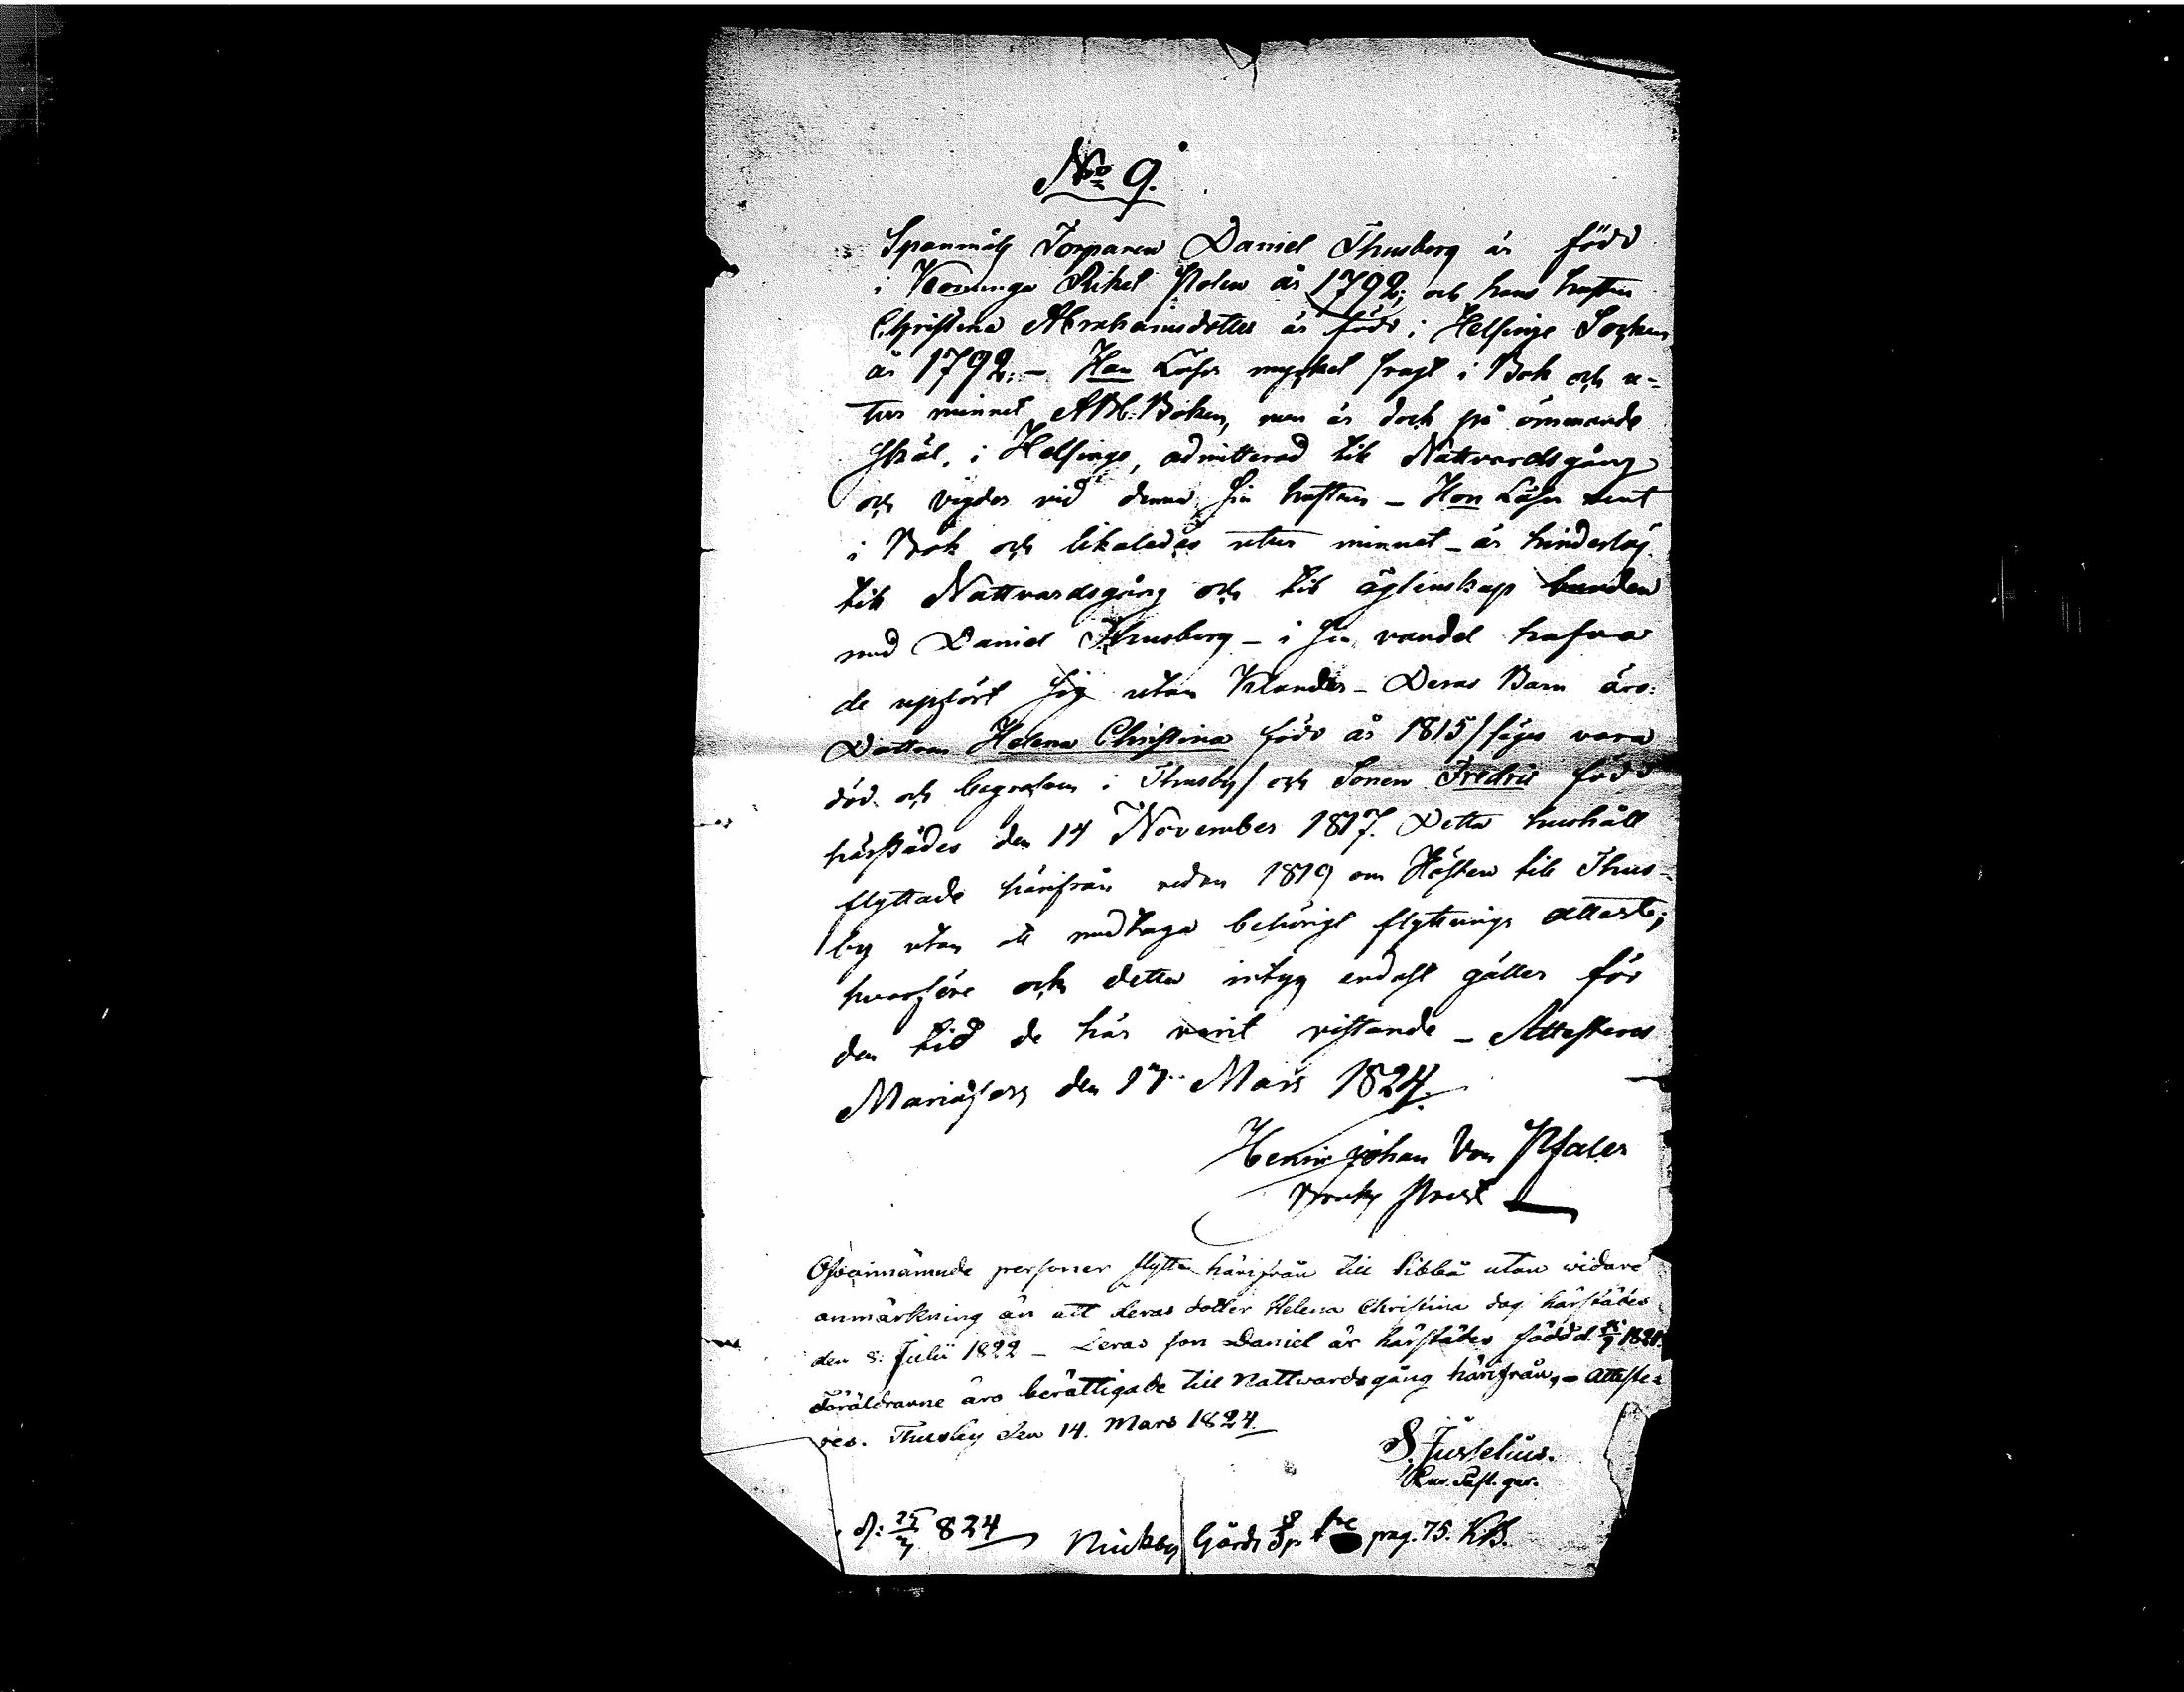 No 9.
Spanmåls Torparen Daniel Thusberg är född
i Konunga Riket Polen år 1792; och hans hustru
Christina Abrahamsdotter är född i Helsinge Socken
år 1792. – Han Läser mycket svagt i Bok och u-
tur minnet ABC Boken, men är dock på ömmande
skäl, i Helsinge, admitterad till Nattvardsgång
och vigder vid denna sin hustru – Hon Läser rent
i Bok och likaledes utur minnet – är hinderlös
till Nattvardsgång och till ägtenskap bunden
med Daniel Thusberg – i sin vandel hafva
de upfört sig utan Klander – Deras Barn äro:
Dottren Helena Christina född år 1815 / säges vara
död och begrafven i Thusby / och Sonen Fredric född
härstädes den 14 November 1817. Detta hushåll
flyttade härifrån redan 1819 om Hösten till Thus-
by utan att medtaga behörigt flyttnings attest;
hvarföre och detta intyg endast gäller för
den tid de här varit vistande – Attesteras
Mariæfors den 17 Mars 1824.
Henric Johan Von Pfaler
Bruks Præst
Ofvannämnde personer flytta härifrån till Sibbå utan widare
anmärkning än att deras dotter Helena Christina dog härstädes
den 8. Julii 1822 – Deras son Daniel är härstädes född d. 1821.
Föräldrarne äro berättigade till Nattwardsgång härifrån, – atteste-
res. Thusby den 14. Mars 1824.
S. Juselius.
Past.
824 Nickby Gårds pag. 75. KB.